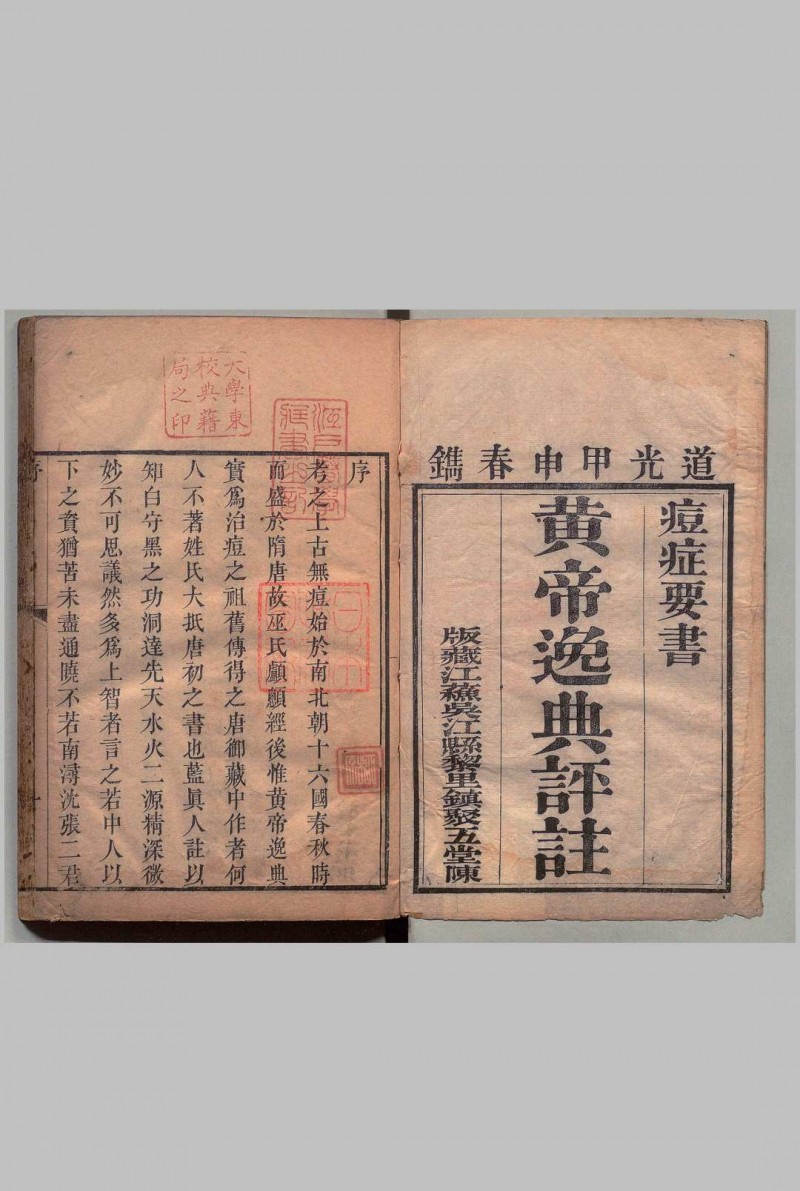 道光甲申春鐫
痘症要書
黄帝逸典評註
版藏江蘇吳江縣黎里鎮聚五堂陳
序
考之上古無痘始於南北朝十六國春秋時
而盛於隋唐故巫氏顱顖經後惟黄帝逸典
實爲治痘之祖舊傳得之唐御藏中作者何
人不著姓氏大抵唐初之書也藍眞人註以
知白守黑之功洞達先天水火二源精深微
妙不可思議然多爲上智者言之若中人以
下之資猶苦未盡通曉不若南潯沈張二君
序
大學東
校典籍
局之印